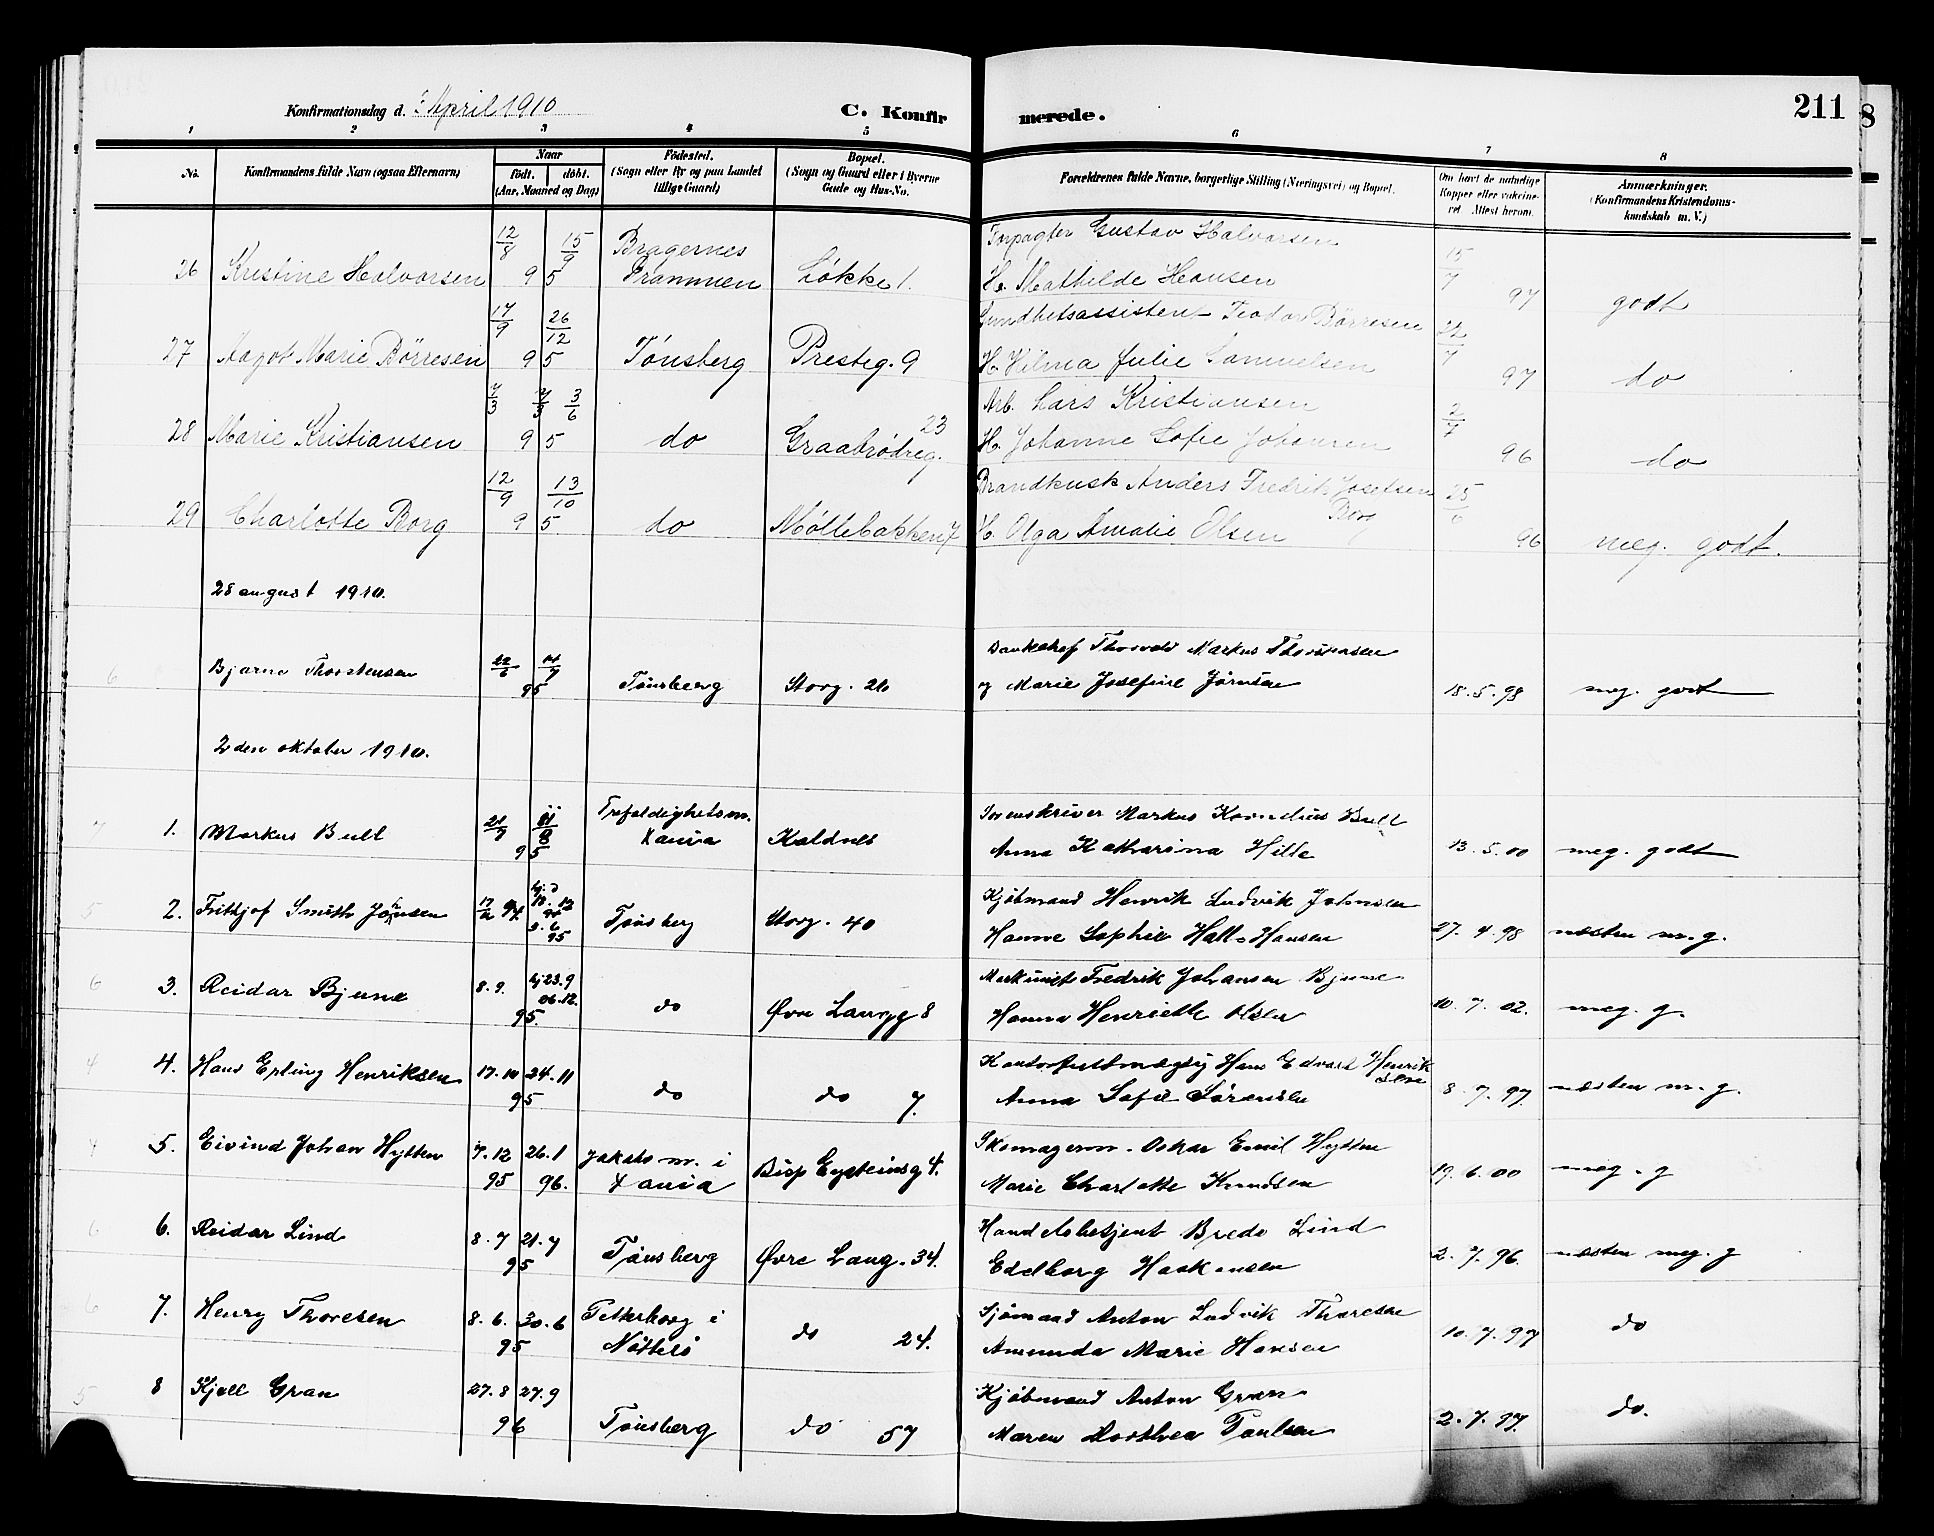 211
8
Konfirmationsdag d. April 1910 C. Konfirmerede.
1 2 3 4 5 6 7 8
No.
Konfirmandens fulde Navn (ogsaa Efternavn)
Naar
født. døbt.
(Aar, Maaned og Dag)
Födested.
(Sogn eller By og paa Landet
tillige Gaard)
Bopæl.
(Sogn og Gaard eller i Byerne
Gade og Hus-No.
Forældrenes fulde Navne, borgerlige Stilling (Næringsvei) og Bopæl.
Om havt de naturlige
Kopper eller vakcine-
ret. Attest herom.
Anmærkninger.
(Konfirmandens Kristendoms-
kundskab m. V.)
12/8 15/9 Bragernes Forpagter Gustav Halvorsen 15/7
26 Kristine Halvorsen 95 Drammen Løkke 1. H. Mathilde Hansen 97 godt
17/9 26/12 Sundhetsassistent Teodor Börresen 22/7
27 Aagot Marie Börresen 95 Tønsberg Presteg. 9 H. Hilma Julie Samuelsen 97 do
7/3 3/6 23 Arb. Lars Kristiansen 2/7
28 Marie Kristiansen 95 do Graabrødreg. H. Johanne Sofie Johansen 96 do
12/9 13/10 Brandkusk Anders Fredrik Josefsen 25/6
Borg
29 Charlotte Borg 95 do Møllebakken 7 H. Olga Amalie Olsen 96 meg. godt.
28 august 1910.
Bankchef Thorvald Markus Thorstensen
6 Bjarne Thorstensen 22/6 14/7 95 Tønsberg Storg. 20 og Marie Josefine Jørnsen 18.5.98 meg. godt
2den oktober 1910.
7 1. Markus Bull 21/7 95 Trefoldighetsm. Kania Kaldnes Sorenskriver Markus Kornelius Bull
Anna Katharina Hille 13.5.00 meg. godt
5 2. Frithjof Smith Johnsen 17/12 94 Tønsberg Storg. 40 Kjøbmand Henrik Ludvik Johnsen
Hanne Sophie Hall-Hansen 27.4.98 næsten m.g.
6 3. Reidar Bjune 8.9. hj 23.9 26.12. 95. do Øvre Langg 8 Fredrik Johansen Bjune
Hanna Henriette Olsen 10.7.02. meg. g.
4 4. Hans Erling Henriksen 17.10 24.11 95. do do 7. Kontorfuldmægtig Hans Edvard Henrik
sen
Anna Sofie Sørensen 8.7.97. næsten m.g.
4 5. Eivind Johan Hytten 7.12 95 26.1 96. Jakobs m. i Xania Bisp Eysteinsg 4. Skomagerm. Oskar Emil Hytten
Marie Charlotte Knudsen 19.6.00 meg. g
6 6. Reidar Lind 8.7 21.7 95 Tønsberg Øvre Lang. 34. Handelsbetjent Bredo Lind
Edelborg Haakonsen 2.7.96. næsten meg. g
6 7. Henry Thoresen 8.6. 30.6 95 i Nøtterö do 24. Sjømand Anton Ludvik Thoresen
Amunda Marie Hansen 10.7.97 do
5 8 Kjell Gran 27.8 27.9 96 Tønsberg do 57 Kjøbmand Anton Gran
Maren Dorthea Paulsen 2.7.97. do.